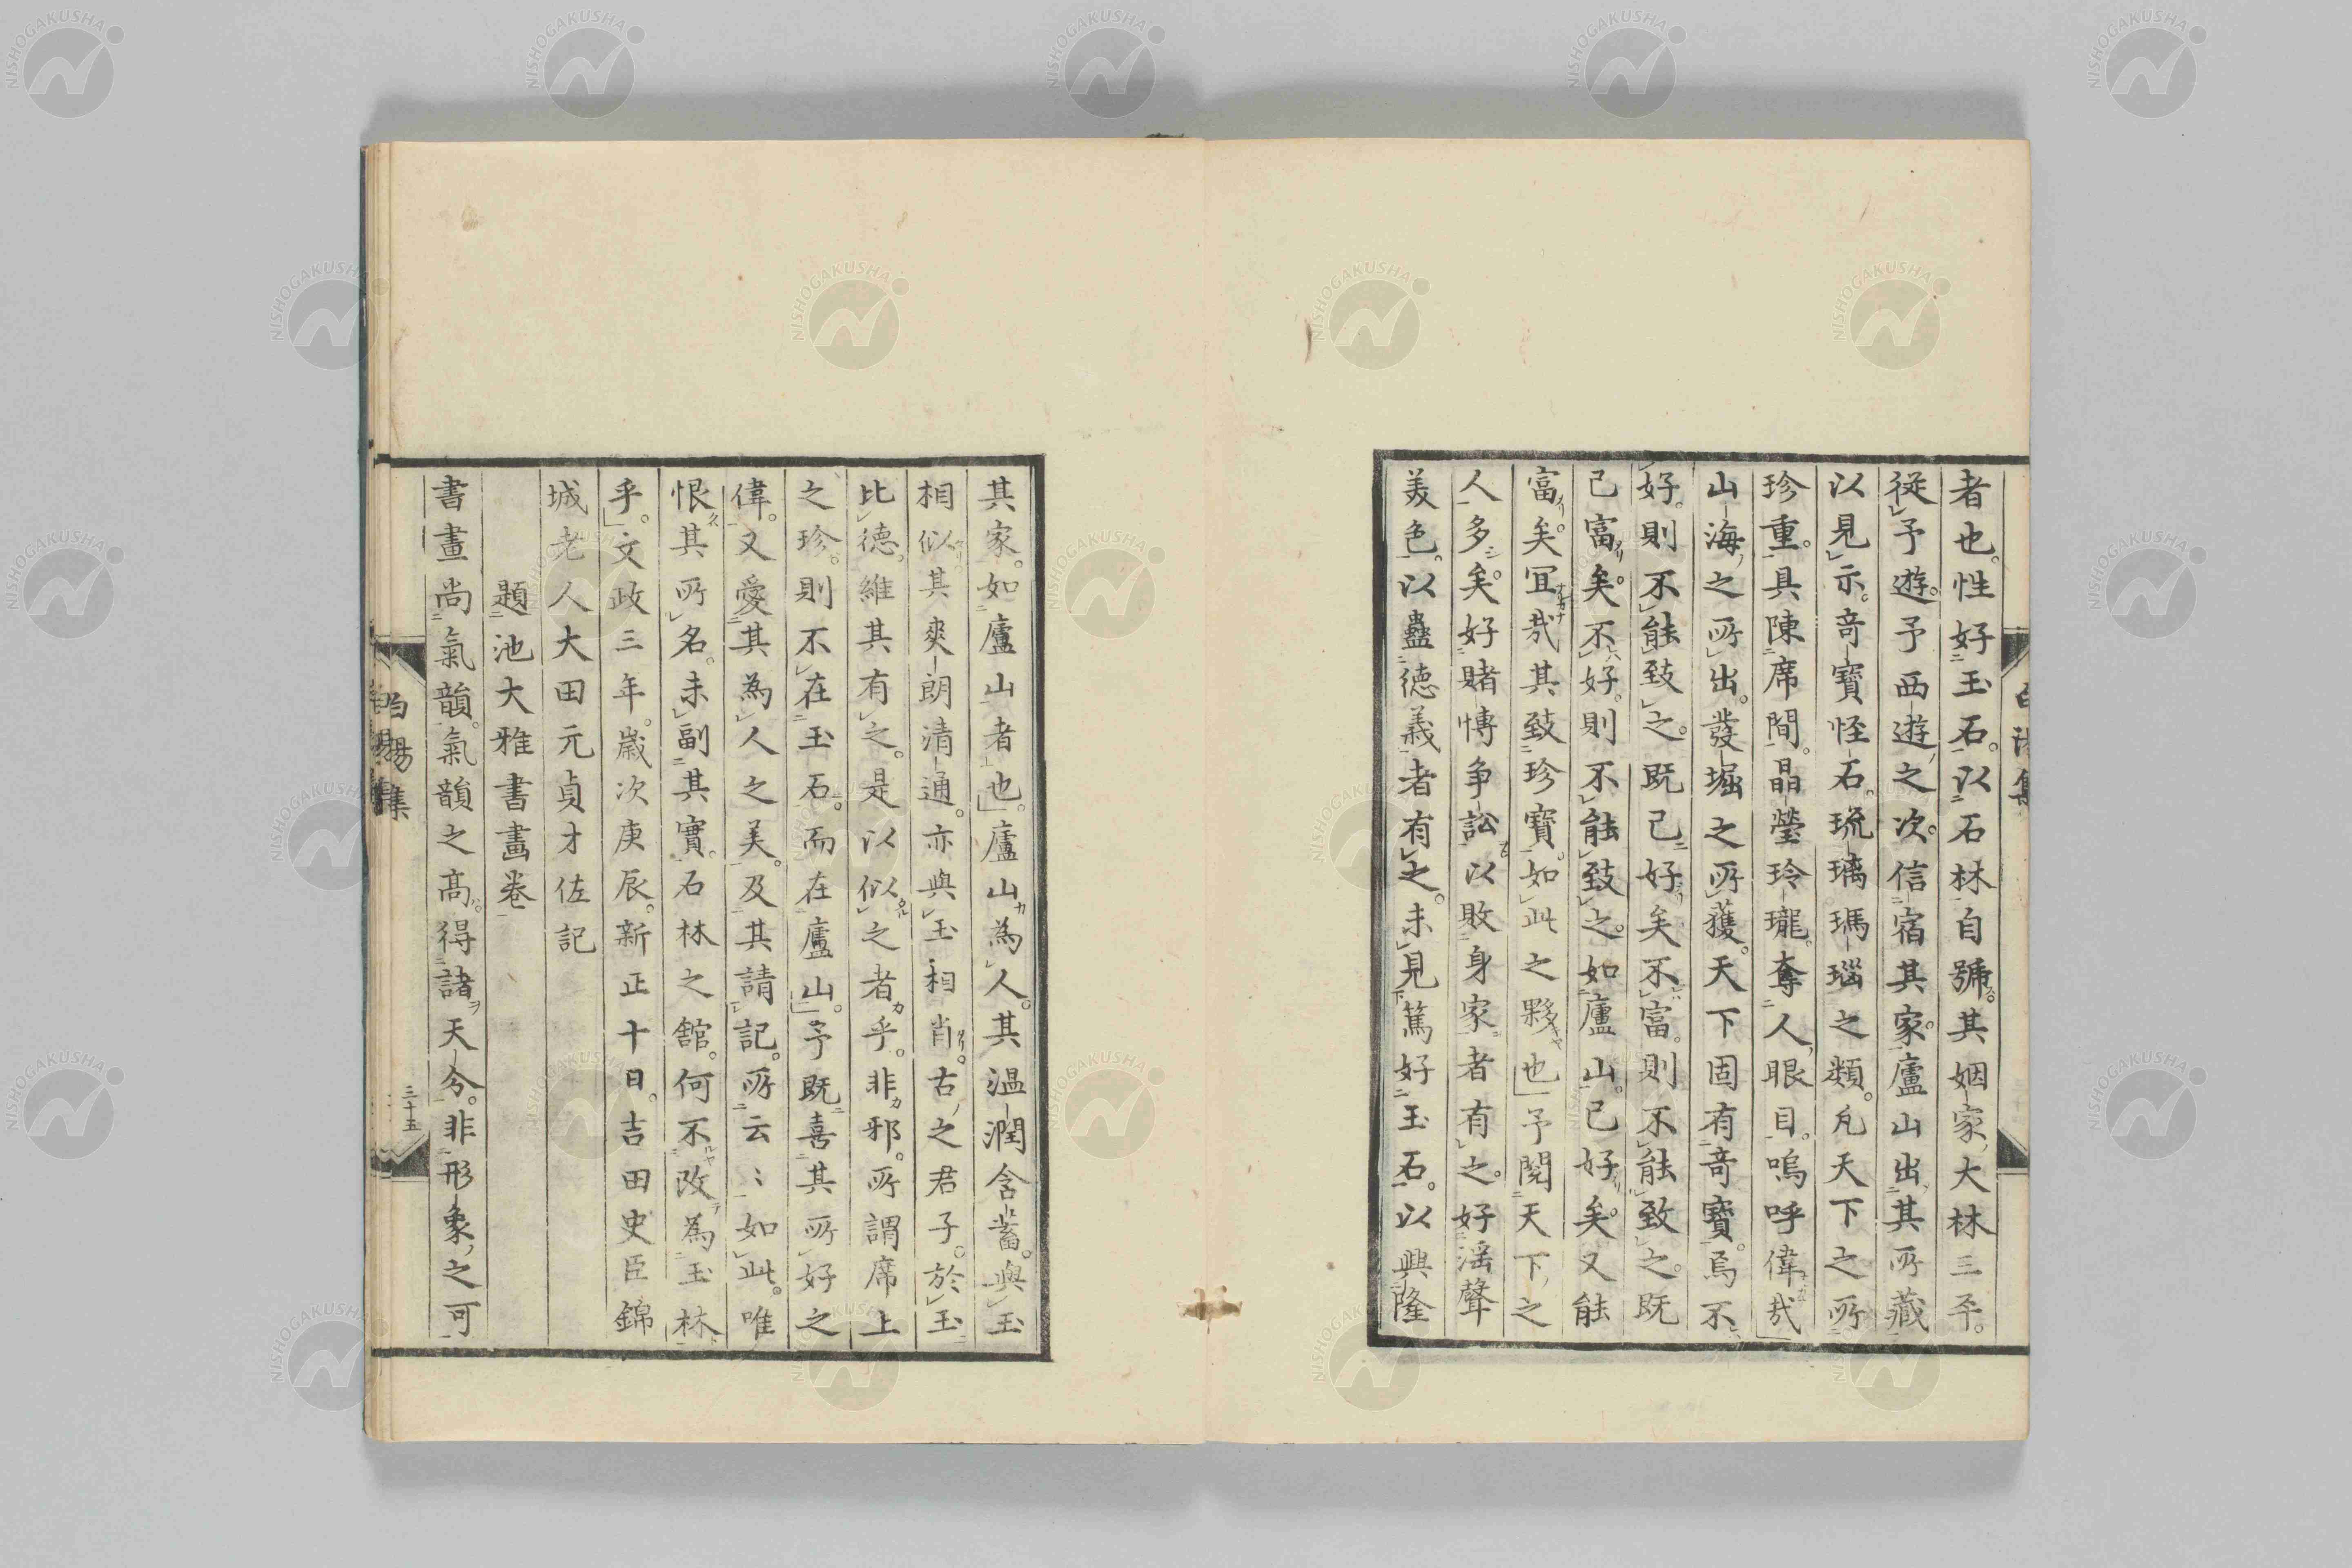 者也。性好玉石。以石林自號。其姻家大林三平。
從予遊。予西遊之次。信宿其家。廬山出其所藏
以見示。竒寶怪石。琉璃瑪瑙之類。凡天下之所
珍重。具陳席間。晶瑩玲瓏。奪人眼目。嗚呼偉哉
山海之所出。發堀之所獲。天下固有竒寶。烏不
好。則不能致之。既已好矣。不富。則不能致之。既
已富矣。不好。則不能致之。如廬山。已好矣。又能
富矣。冝哉其致珍寶如此之夥也予閱天下之
人多矣。好賭博争訟以敗身家者有之。好淫聲
美色。以蠱德義者有之。未見篤好玉石。以興隆
其家。如廬山者也。廬山為人。其温潤含蓄。與玉
相似其爽朗清通。亦與玉相肖。古之君子。於玉
比德。維其有之。是以似之者乎。非邪。所謂席上
之珍。則不在玉石。而在廬山。予既喜其所好之
偉。又愛其為人之美。及其請記。所云〻如此。唯
恨其所名。未副其實。石林之舘。何不改為玉林
乎。文政三年。歲次庚辰。新正十日。吉田史臣錦
城老人大田元貞才佐記
題池大雅書畫卷
書畫尚氣韻。氣韻之高。得諸天分。非形象之可
三十五
NISHOGAKUSHA